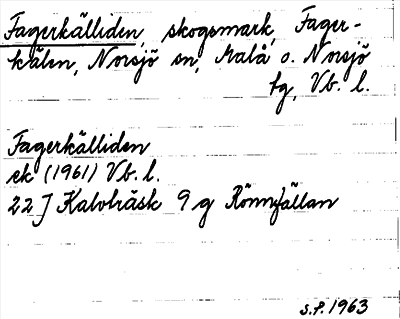 Fagerkälliden, skogsmark, Fager-
kälen, Norsjö sn, Malå o. Norsjö
tg, Vb. l.
Fagerkälliden
ek (1961) Vb. l.
22 J Kalvträsk 9 g Rönnfällan
S.P. 1963